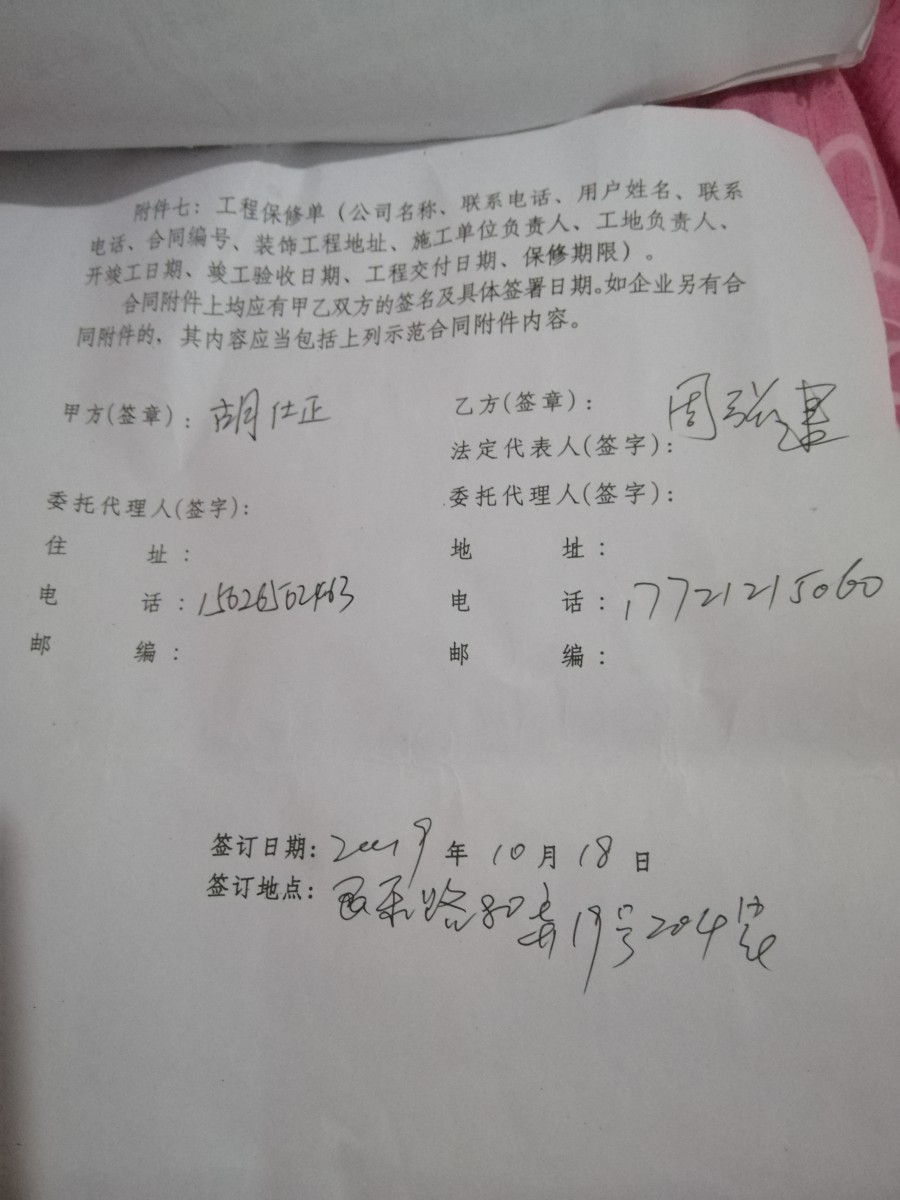 附件七：工程保修单（公司名称、联系电话、用户姓名、联系
电话、合同编号、装饰工程地址、施工单位负责人、工地负责人、
开竣工日期、竣工验收日期、工程交付日期、保修期限）。
合同附件上均应有甲乙双方的签名及具体签署日期。如企业另有合
同附件的，其内容应当包括上列示范合同附件内容。
甲方(签章)：胡仕正
乙方(签章)：周
法定代表人(签字)：
委托代理人(签字)：
委托代理人(签字)：
住 址：
地 址：
电 话：15026502463
电 话：17721215060
邮 编：
邮 编：
签订日期：2009年10月18日
签订地点：路80弄19号204